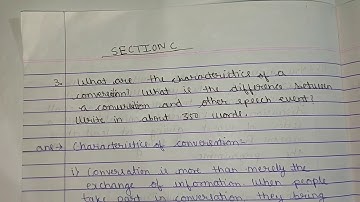 SECTION C
3. What are the characteristics of a
conversation? What is the difference between
a conversation and other speech event?
Write in about 350 words.
ans→ Characteristics of conversation:-
i) Conversation is more than merely the
exchange of information. When people
take part in conversation, they bring